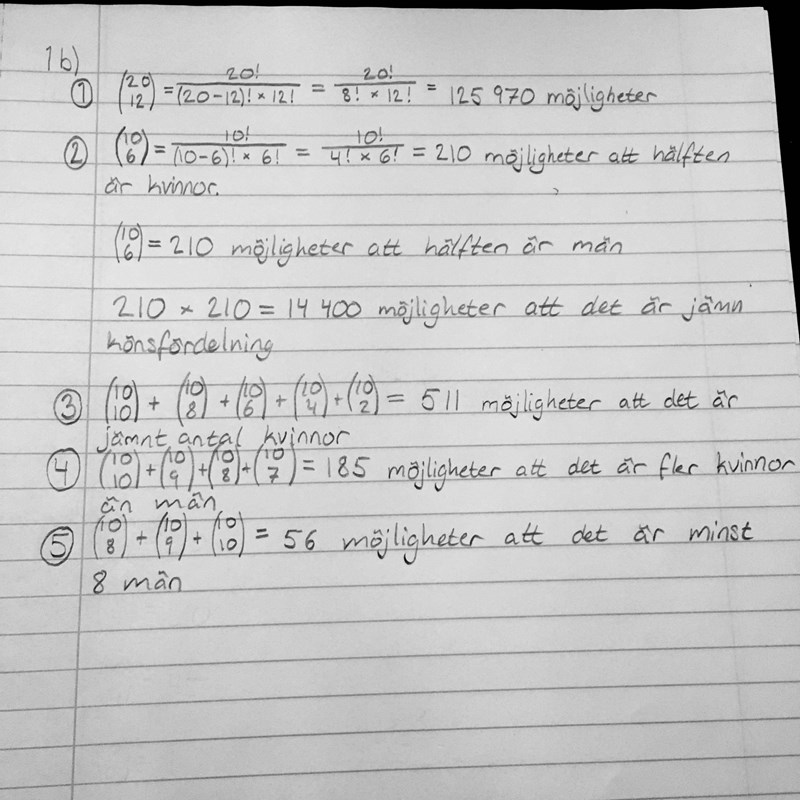 1b)
① (20 12) = 20! / (20-12)! × 12! = 20! / 8! × 12! = 125 970 möjligheter
② (10 6) = 10! / (10-6)! × 6! = 10! / 4! × 6! = 210 möjligheter att hälften
är kvinnor.
(10 6) = 210 möjligheter att hälften är män
210 × 210 = 14 400 möjligheter att det är jämn
könsfördelning
③ (10 10) + (10 8) + (10 6) + (10 4) + (10 2) = 511 möjligheter att det är
jämnt antal kvinnor
④ (10 10) + (10 9) + (10 8) + (10 7) = 185 möjligheter att det är fler kvinnor
än män
⑤ (10 8) + (10 9) + (10 10) = 56 möjligheter att det är minst
8 män